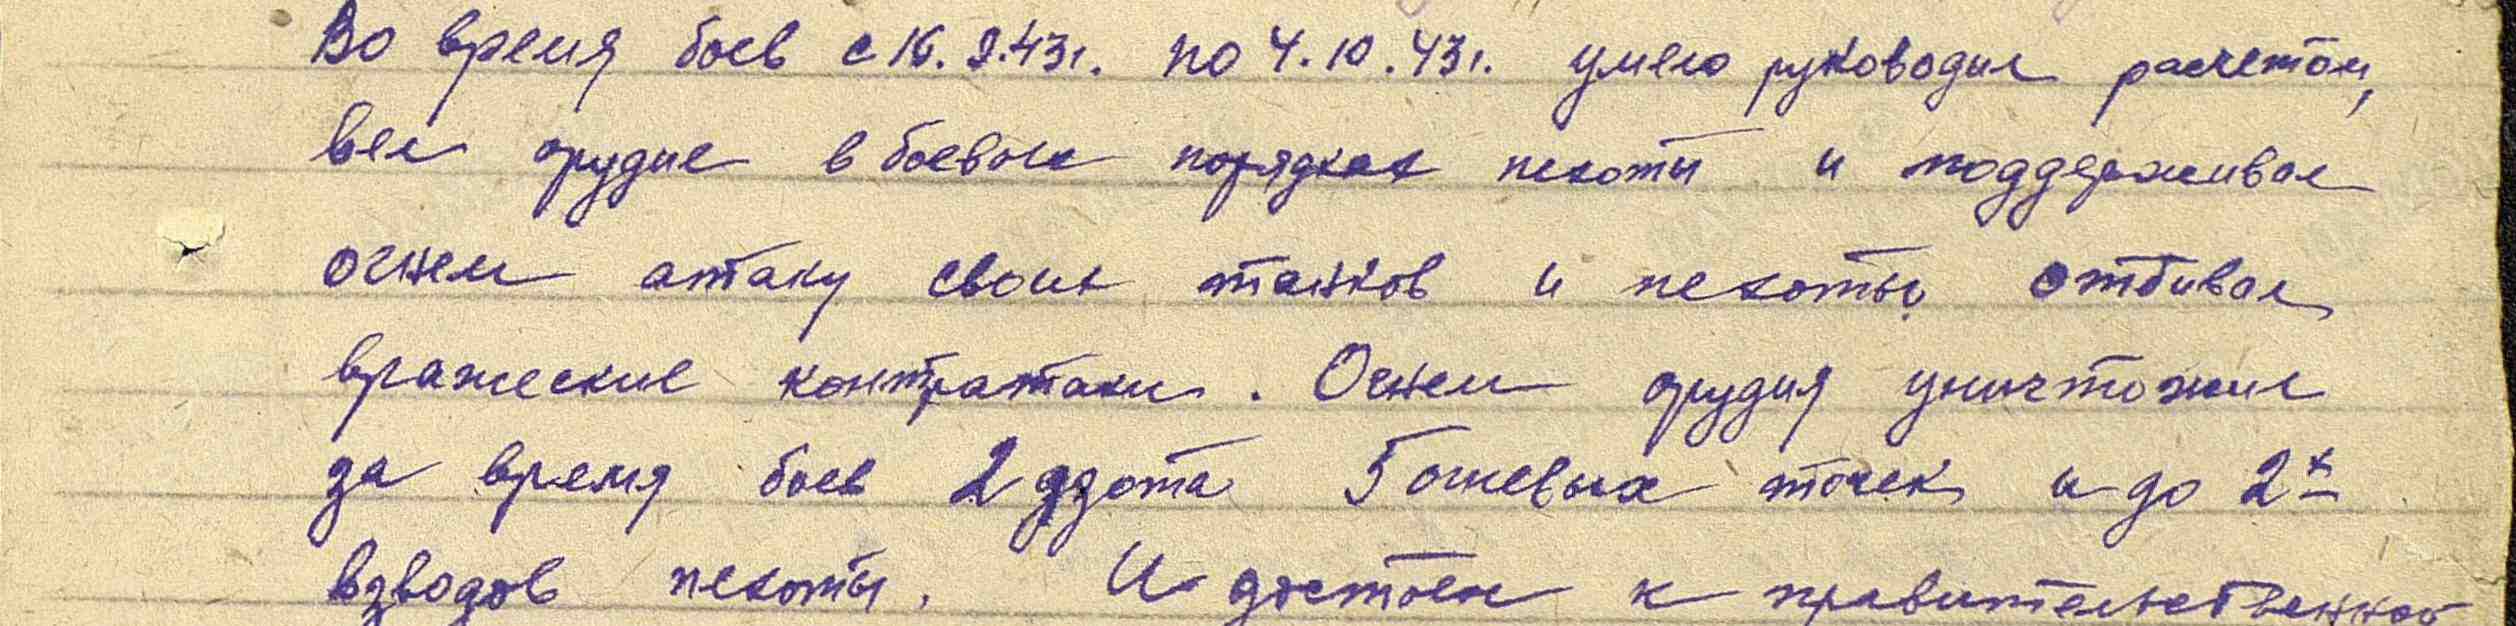 Во время боев с 16.9.43г. по 4.10.43г. умело руководил расчетом,
вел орудие в боевых порядках пехоты и поддерживал
огнем атаку своих танков и пехоты отбивал
вражеские контратаки. Огнем орудия уничтожил
за время боев 2 дзота 5 огневых точек и до 2х
взводов пехоты. И достоен к правительственной